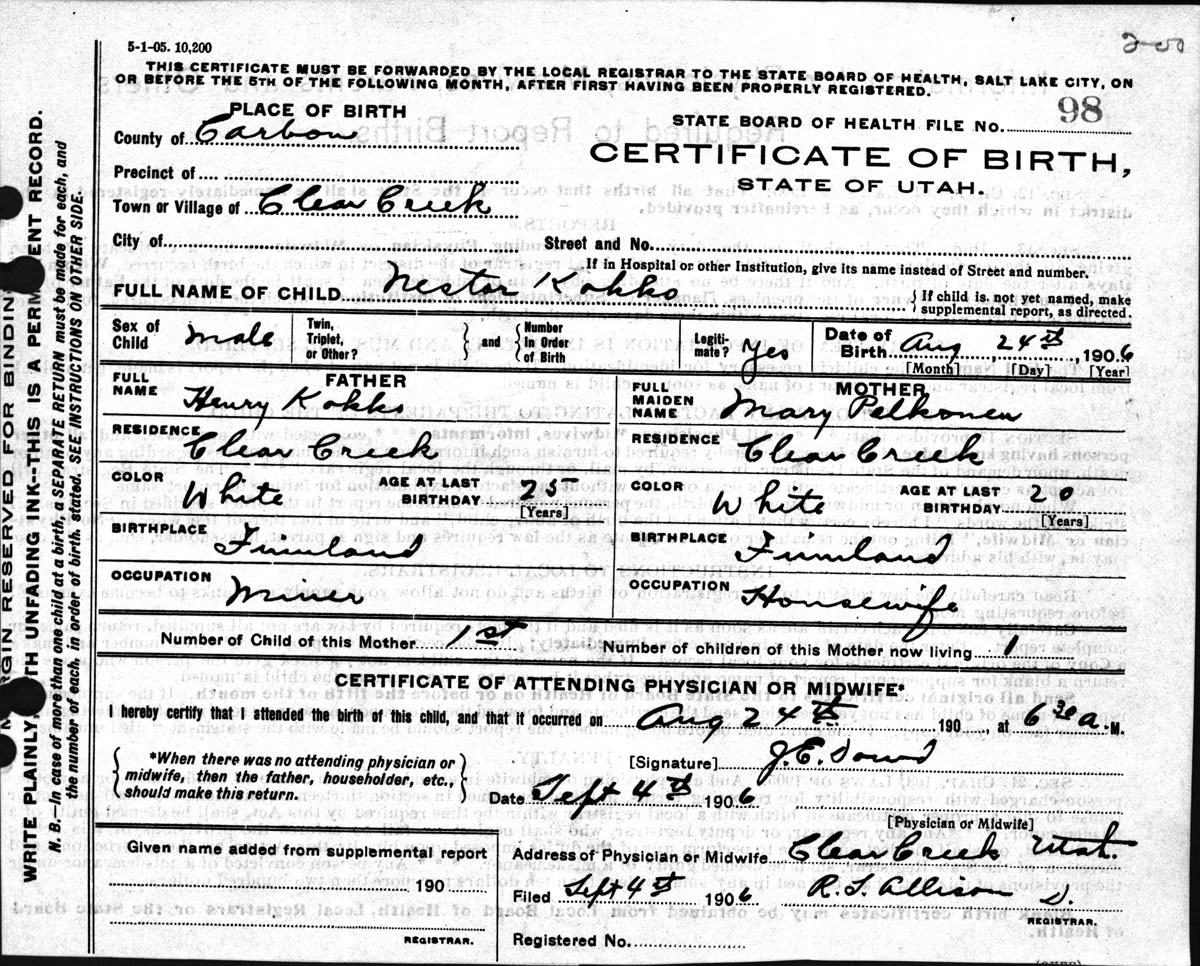 5-1-05. 10,200
THIS CERTIFICATE MUST BE FORWARDED BY THE LOCAL REGISTRAR TO THE STATE BOARD OF HEALTH, SALT LAKE CITY, ON
OR BEFORE THE 5TH OF THE FOLLOWING MONTH, AFTER FIRST HAVING BEEN PROPERLY REGISTERED.
PLACE OF BIRTH
County of Carbon
Precinct of
Town or Village of Clear Creek
STATE BOARD OF HEALTH FILE No. 98
CERTIFICATE OF BIRTH,
STATE OF UTAH.
City of Street and No.
If in Hospital or other Institution, give its name instead of Street and number.
FULL NAME OF CHILD Nestor Kokko { If child is not yet named, make
supplemental report, as directed.
Sex of Child Male Twin, Triplet, or Other? } and { Number In Order of Birth Legiti-mate? yes Date of Birth Aug 24th, 1906
[Month] [Day] [Year]
FATHER
FULL NAME Henry Kokko
RESIDENCE Clear Creek
COLOR White AGE AT LAST BIRTHDAY 25
[Years]
BIRTHPLACE Finnland
OCCUPATION Miner
MOTHER
FULL MAIDEN NAME Mary Pelkonen
RESIDENCE Clear Creek
COLOR White AGE AT LAST BIRTHDAY 20
[Years]
BIRTHPLACE Finnland
OCCUPATION Housewife
Number of Child of this Mother 1st Number of children of this Mother now living 1
CERTIFICATE OF ATTENDING PHYSICIAN OR MIDWIFE*
I hereby certify that I attended the birth of this child, and that it occurred on Aug 24th 190 , at 6 30 a.M.
{ *When there was no attending physician or
midwife, then the father, householder, etc.,
should make this return. }
[Signature] J. E. Dowd
Date Sept 4th 1906
[Physician or Midwife]
Given name added from supplemental report
190
REGISTRAR.
Address of Physician or Midwife Clear Creek Utah.
Filed Sept 4th 1906 R. T. Allison
REGISTRAR.
Registered No.
MARGIN RESERVED FOR BINDING
WRITE PLAINLY, WITH UNFADING INK--THIS IS A PERMANENT RECORD.
N. B.—In case of more than one child at a birth, a SEPARATE RETURN must be made for each, and
the number of each, in order of birth, stated. SEE INSTRUCTIONS ON OTHER SIDE.